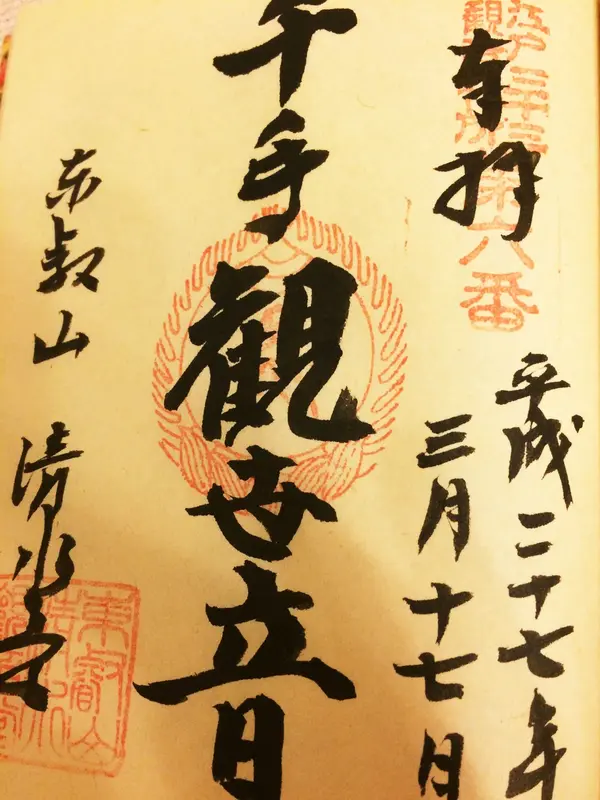 江戸三十三
観音札所第六番
奉拝
平成二十七年
三月十七日
千手観世音
東叡山 清水堂
東叡山